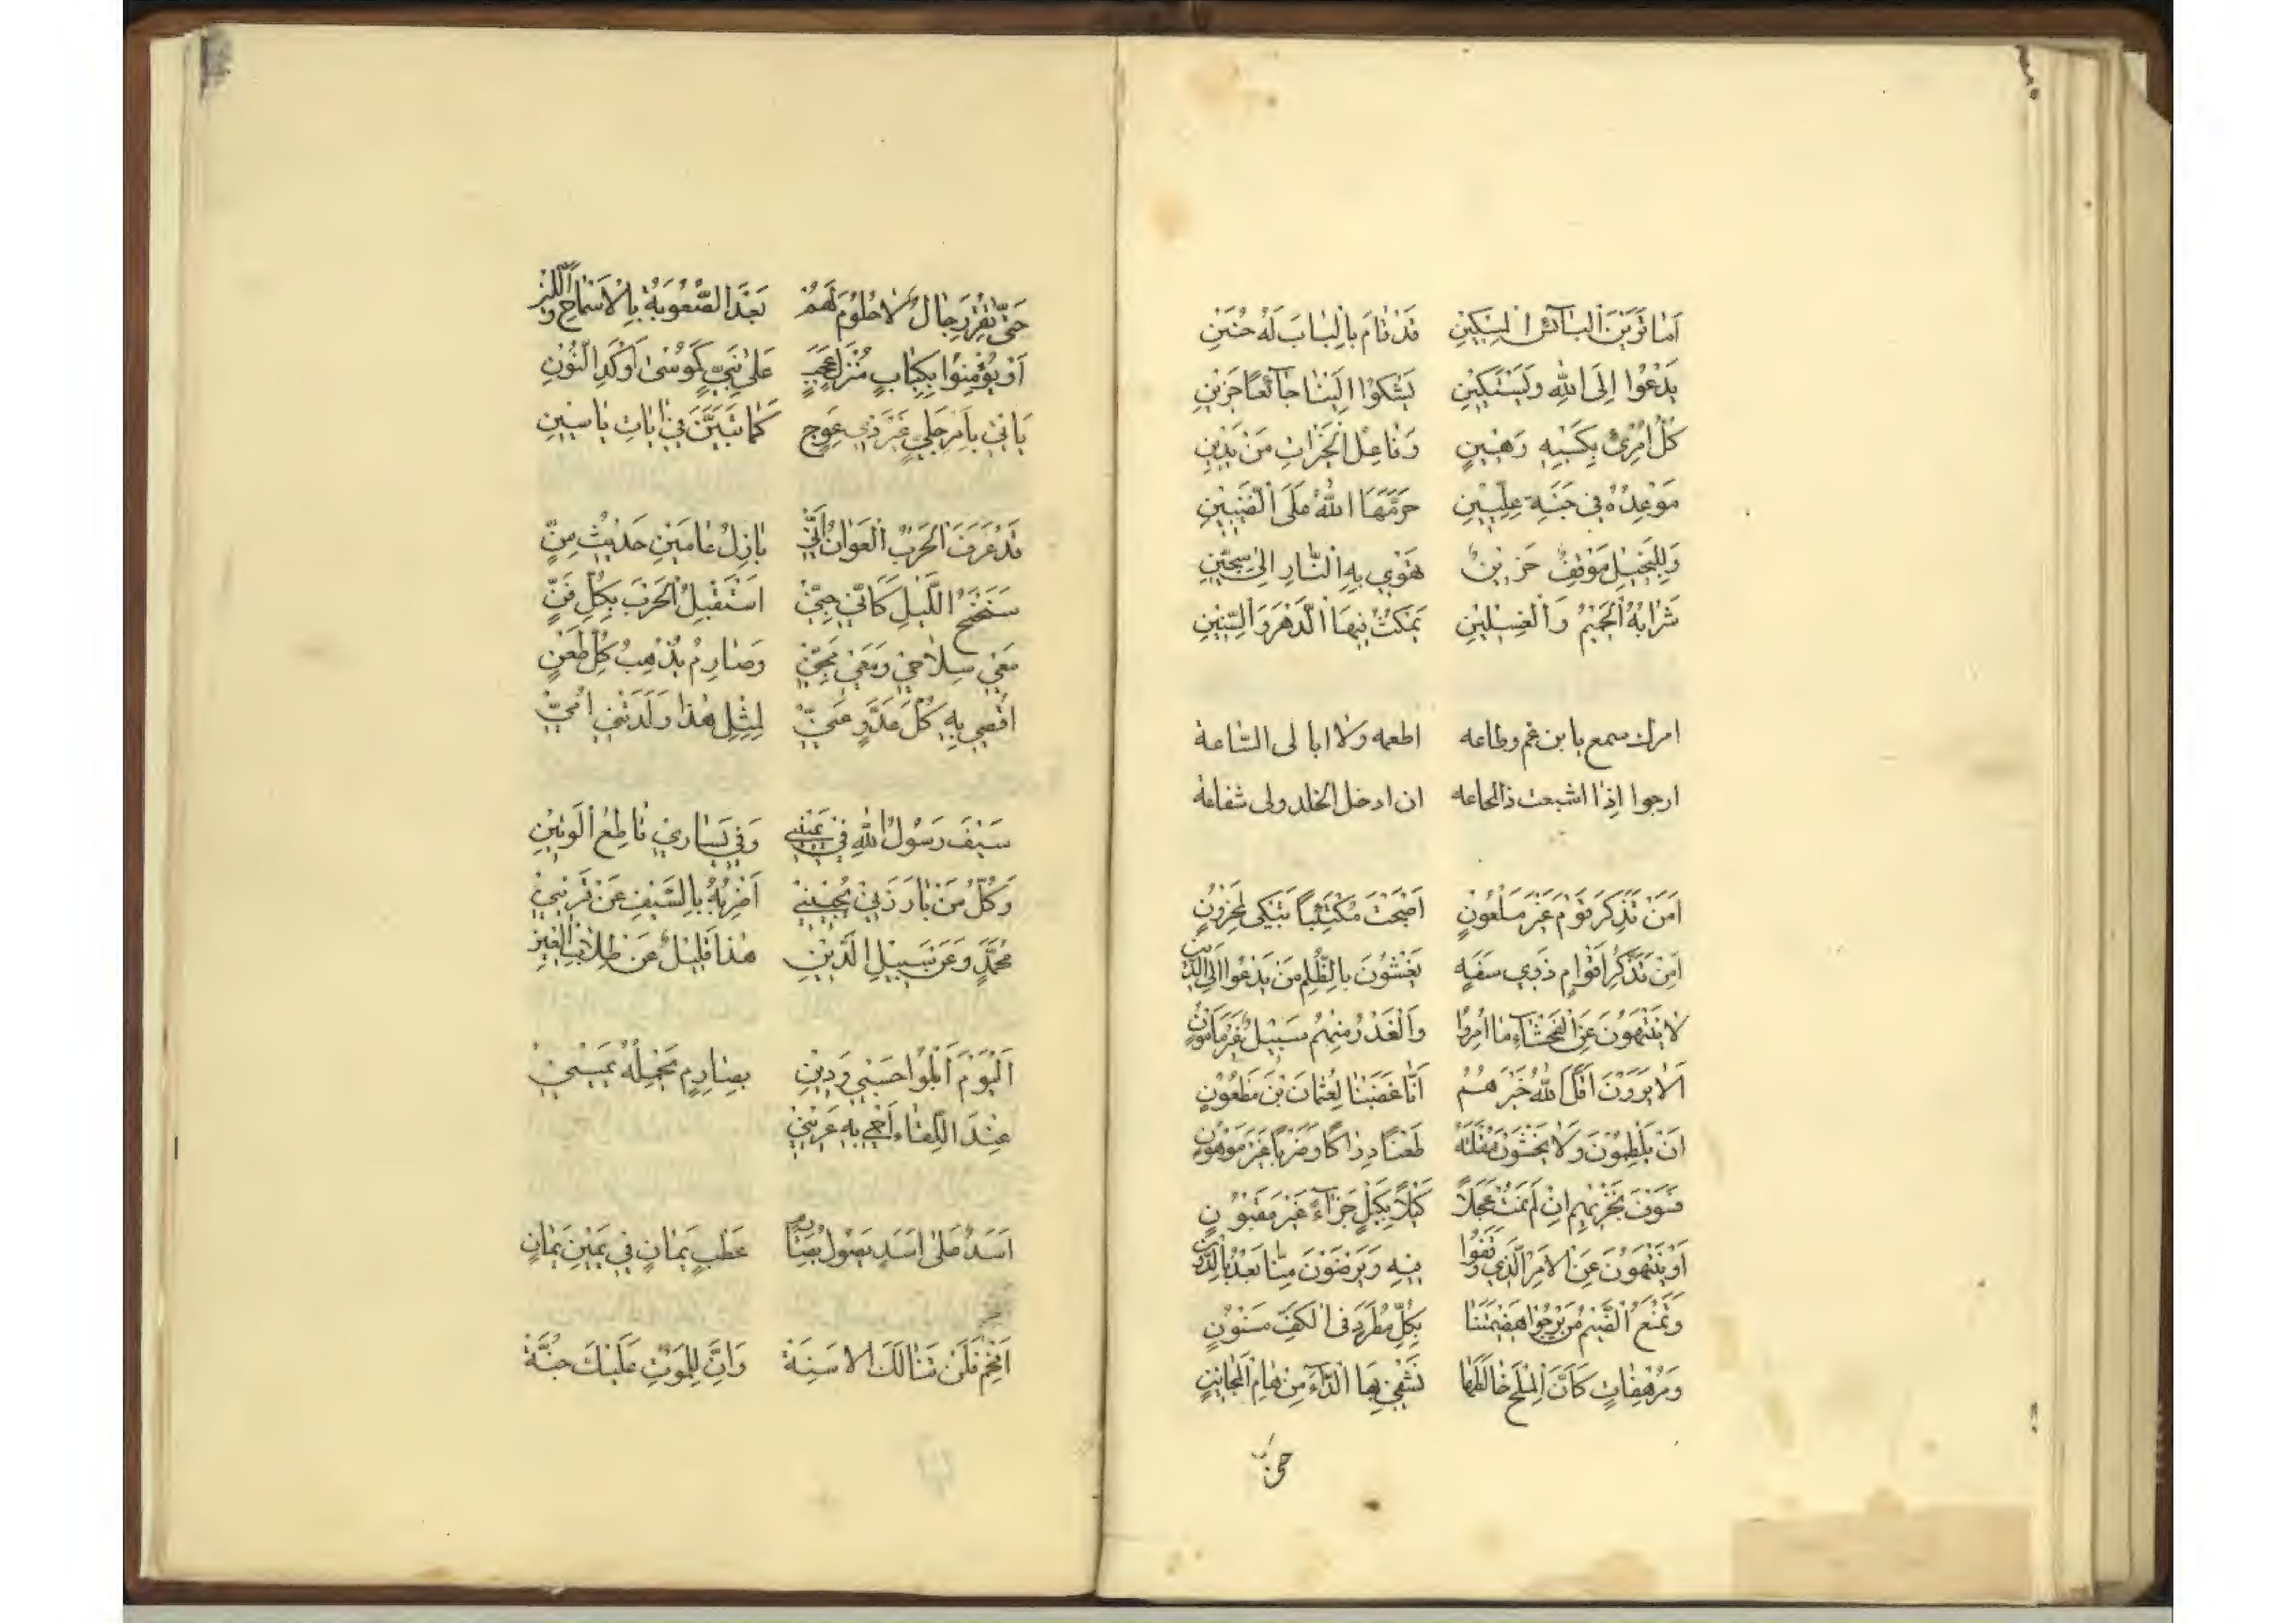 اَمٰا تَرَيْنَ الْبٰآئِسَ الْمِسْكِينِ قَدْ قٰامَ بِالْبٰابَ لَهُ حَنِينِ
يَدْعُوا اِلَى اللّٰهِ وَيَسْتَكِينِ يَشْكُوْا اِلَيْنٰا جٰآئِعًا حَزِينِ
كُلُّ امْرِئٍ بِكَسْبِهِ رَهِينٍ وَفٰاعِلُ الْخَيْرٰاتِ مَنْ يَدِينِ
مَوْعِدُهُ فِي جَنَّةِ عِلِّيِّينِ حَرَّمَهَا اللّٰهُ عَلَى الضَّنِينِ
وَلِلْبَخِيلِ مَوْقِفٌ حَزِينٌ تَهْوِي بِهِ النّٰارِ اِلىٰ سِجِّينِ
شَرٰابُهُ الْحَمِيمُ وَالْغِسْلِينِ يَمْكُثُ فِيهَا الدَّهْرَ وَالسِّنِينِ
امرك سمع يا بن عم وطاعه اطعمه ولا ابالى السّاعة
ارجوا اِذٰا اشبعت ذالمجاعه ان ادخل الخلد ولى شفاعة
اَمَنْ تَذَكُّرِ قَوْمٍ غَيْرِ مَلْعُونٍ اَصْبَحْتَ مُكْتَئِبًا تَبْكى لِمَحْزُونٍ
اَمِنْ تَذَكُّرِ اَقْوٰامٍ ذَوِي سَفَهٍ يَغْشَوْنَ بِالظُّلْمِ مَنْ يَدْعُوا اِلَى الدِّينِ
لٰا يَنْتَهُونَ عَنِ الْفَحْشٰآءِ مٰا اُمِرُوا وَالْغَدْرُ مِنْهُمْ سَبِيلٌ غَيْرُ مَأْمُونٍ
اَلٰا يَرَوْنَ اَقَلَّ اللّٰهُ خَيْرَهُمْ اَنّٰا غَضِبْنٰا لِعُثْمٰانَ بْنَ مَظْعُونٍ
اِنْ يَلْطِمُونَ وَلٰا يَخْشَوْنَ مُقْلَتَهُ طَعْنًا دِرٰاكًا وَضَرْبًا غَيْرَ مَوْهُونٍ
فَسَوْفَ يَجْزِيهِمِ اِنْ لَمْ يَمُتْ عَجَلًا كَيْلًا بِكَيْلٍ جَزٰاءً غَيْرَ مَغْبُونٍ
اَوْ يَنْتَهُونَ عَنِ الْاَمْرِ الَّذِي وَقَفُوا فِيهِ وَيَرْضَوْنَ مِنّٰا بَعْدُ بِالدُّونِ
وَنَمْنَعُ الضَّيْمَ مَنْ يَرْجُوا هَضِيمَتَنٰا بِكُلِّ مُطَّرِدٍ فى الْكَفِّ مَسْنُونٍ
وَمُرْهَفٰاتٍ كَاَنَّ الْمِلْحَ خٰالَطَهٰا نَشْفِي بِهَا الدّٰآءَ مِنْ هٰامِ الْمَجٰانِينِ
حتى
حَتّٰى تُقِرَّ رِجٰالٌ لٰا حُلُومَ لَهُمْ بَعْدَ الصُّعُوبَةِ بِالْاِسْمٰاحِ وَاللِّينِ
اَوْ يُؤْمِنُوا بِكِتٰابٍ مُنْزَلٍ عَجَبٍ عَلىٰ نَبِيٍّ كَمُوسىٰ اَوْ كَذِي النُّونِ
يَاْتِي بِاَمْرٍ جَلِيٍّ غَيْرِ ذِي عِوَجٍ كَمٰا تَبَيَّنَ فِي اٰيٰاتِ يٰاسِينِ
قَدْ عَرَفَ الْحَرْبُ الْعَوٰانُ اَنِّي بٰازِلُ عٰامَيْنِ حَدِيثُ سِنٍّ
سَنَحْنَحُ اللَّيْلِ كَاَنِّي جِنِّيْ اَسْتَقْبِلُ الْحَرْبَ بِكُلِّ فَنٍّ
مَعِي سِلٰاحِي وَمَعِي مِجَنِّيْ وَصٰارِمٌ يُذْهِبُ كُلَّ طَعْنٍ
اَقْصِي بِهِ كُلَّ عَدُوٍّ عَنِّيْ لِمِثْلِ هٰذٰا وَلَدَتْنِي اُمِّيْ
سَيْفَ رَسُولُ اللّٰهِ فِي يَمِينِي وَفِي يَسٰارِي قٰاطِعُ الْوَتِينِ
وَكُلُّ مَنْ بٰارَزَنِي يَجِينِيْ اَضْرِبُهُ بِالسَّيْفِ عَنْ قَرِينِيْ
مُحَمَّدٍ وَعَنْ سَبِيلِ الدِّينِ هٰذٰا قَلِيلٌ عَنْ طِلٰابِ الْعِينِ
اَلْيَوْمَ اَبْلُوْا حَسَبِي وَدِينِ بِصٰارِمٍ تَحْمِلُهُ يَمِينِيْ
عِنْدَ اللِّقٰاءِ اَحْمِي بِهِ عَرِينِيْ
اَسَدٌ عَلىٰ اَسَدٍ يَصُولُ بِصٰارِمٍ عَضْبٍ يَمٰانٍ فِي يَمِينِ يَمٰانٍ
اَقْحِمْ فَلَنْ تَنٰالَكَ الْاَسِنَّةْ وَاِنَّ لِلْمَوْتِ عَلَيْكَ جُنَّةْ